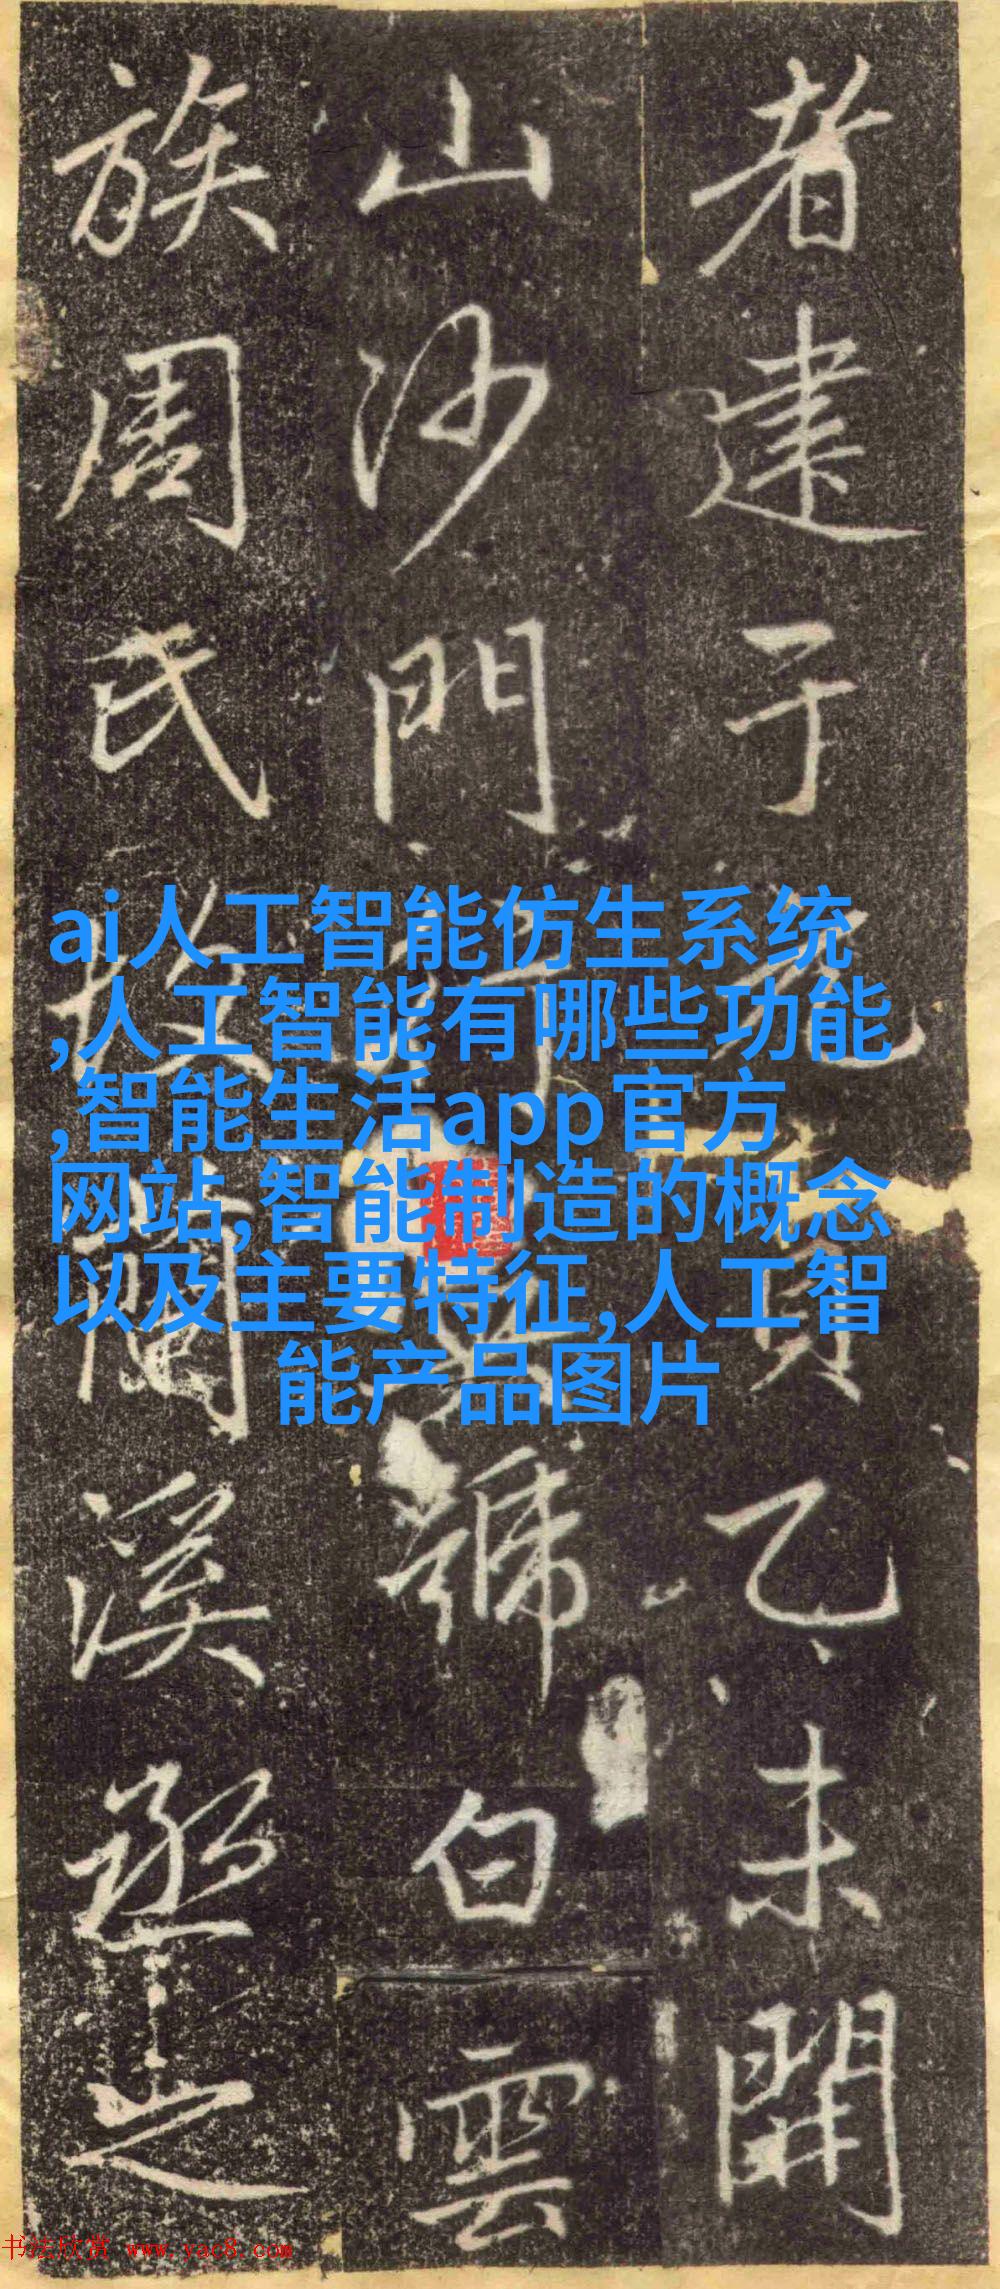 者建于元貞乙未開
山沙門行號白雲
族周氏蘭溪丞之
ai人工智能仿生系统
,人工智能有哪些功能
,智能生活app官方
网站,智能制造的概念
以及主要特征,人工智
能产品图片
书法欣赏 www.yac8.com